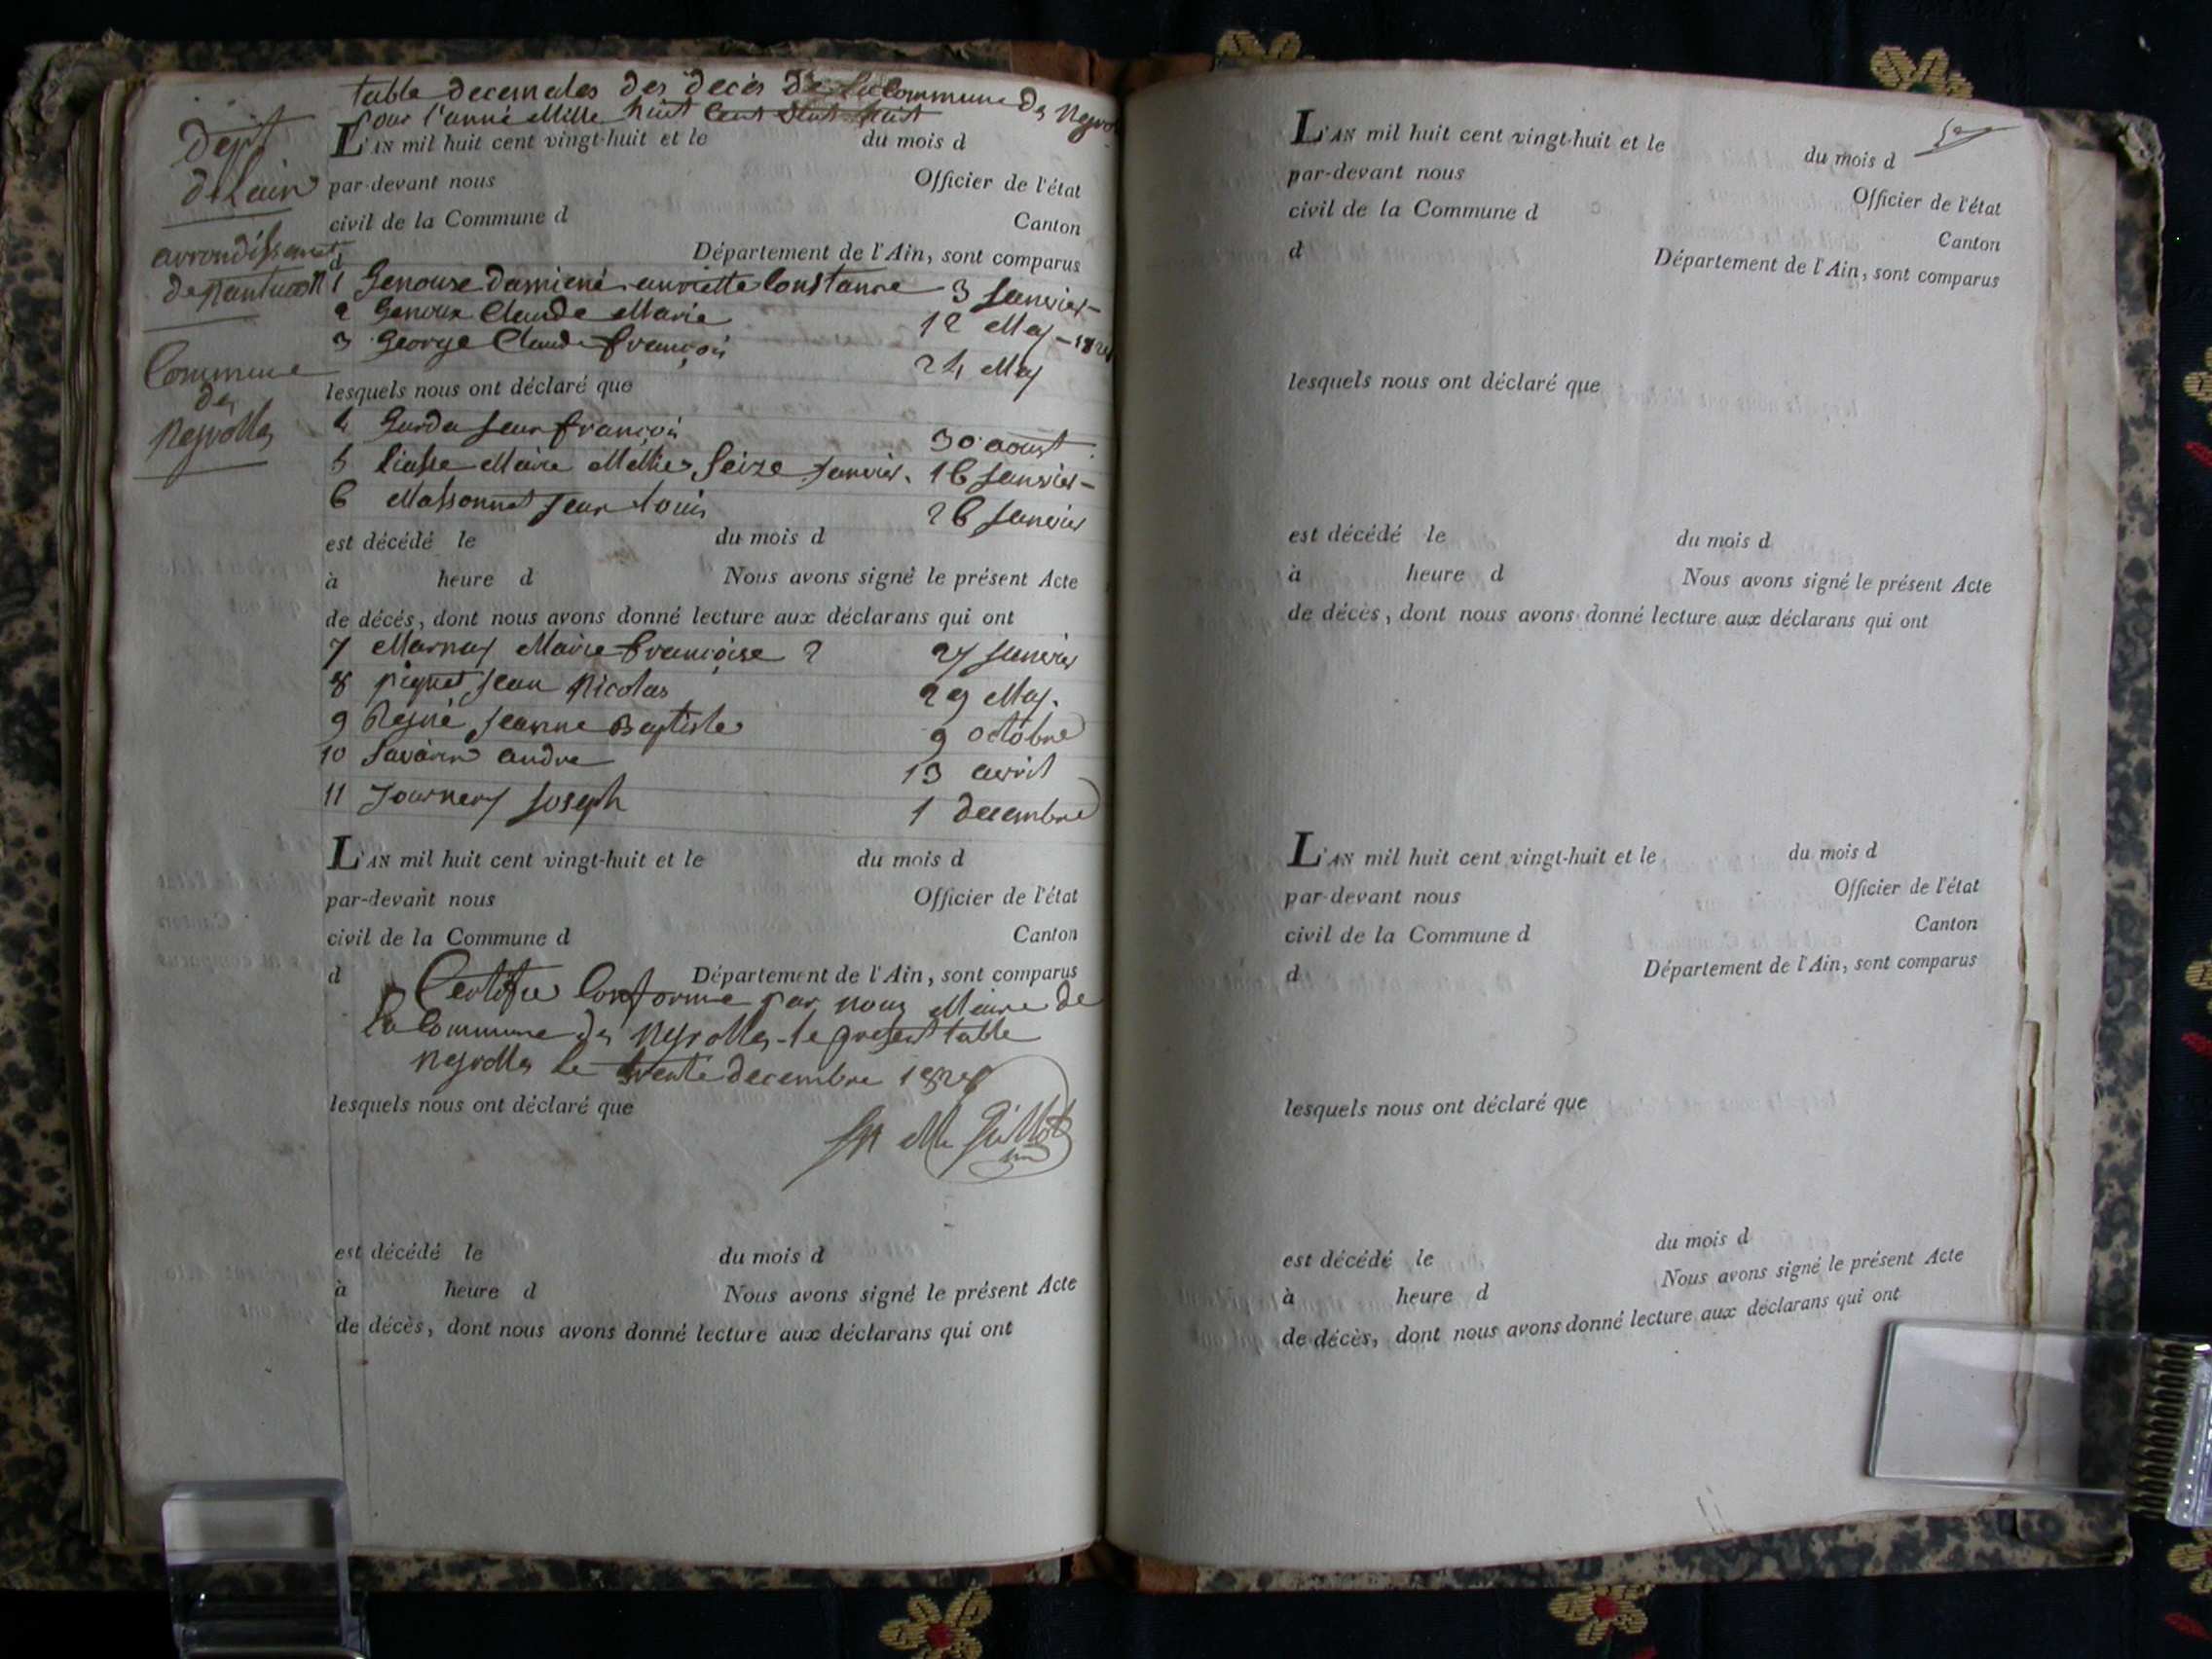 table decemales des decés De La Commune Des Neyrol
Pour l'anné Mille huit Cent vint huit
L'AN mil huit cent vingt-huit et le du mois d
par-devant nous Officier de l'état
civil de la Commune d Canton
d Département de l'Ain, sont comparus
Dept
de Lain
arrondissement
de nantua
Commune
des
Neyrolles
1 Genoux damiene anriette Constance 3 Janvier
2 Genoux Claude Marie 12 May 1828
3 George Claude françois 24 May
lesquels nous ont déclaré que
4 Jean françois 30 aoust
5 Liasse Marie Seize Janvier. 16 Janvier
6 Massonnet Jean Louis 26 Janvier
est décédé le du mois d
à heure d Nous avons signé le présent Acte
de décés, dont nous avons donné lecture aux déclarans qui ont
7 Marnay Marie françoise 2 27 Janvier
8 piquet Jean Nicolas 29 May.
9 Jeanne Baptiste 9 octobre
10 Savarin andre 13 avril
11 Journery Joseph 1 decembre
L'AN mil huit cent vingt-huit et le du mois d
par-devant nous Officier de l'état
civil de la Commune d Canton
d Département de l'Ain, sont comparus
Certifie Conforme par nous Maire de
La Commune des Neyrolles le present table
Neyrolles le trente decembre 1828
lesquels nous ont déclaré que
est décédé le du mois d
à heure d Nous avons signé le présent Acte
de décès, dont nous avons donné lecture aux déclarans qui ont
L'AN mil huit cent vingt-huit et le du mois d
par-devant nous Officier de l'état
civil de la Commune d Canton
d Département de l'Ain, sont comparus
lesquels nous ont déclaré que
est décédé le du mois d
à heure d Nous avons signé le présent Acte
de décès, dont nous avons donné lecture aux déclarans qui ont
L'AN mil huit cent vingt-huit et le du mois d
par-devant nous Officier de l'état
civil de la Commune d Canton
d Département de l'Ain, sont comparus
lesquels nous ont déclaré que
est décédé le du mois d
à heure d Nous avons signé le présent Acte
de décès, dont nous avons donné lecture aux déclarans qui ont